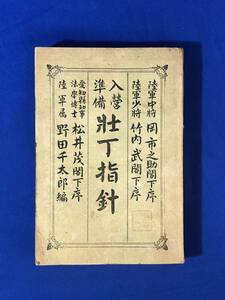 陸軍中將 岡市之助閣下序
陸軍少將 竹内武閣下序
入營準備 壯丁指針
愛知縣知事 法學博士 松井茂閣下序
陸軍屬 野田千太郎編